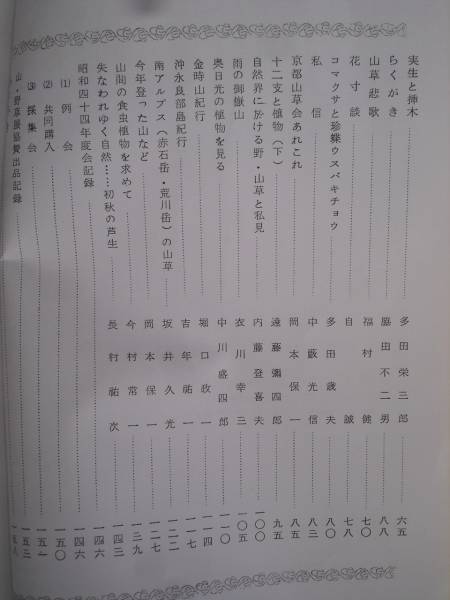 実生と挿木 多田栄三郎 六五
らくがき 脇田不二男 六八
山草悲歌 福村健 七〇
花寸談 自誠 七八
コマクサと珍蝶ウスバキチョウ 多田歳夫 八〇
私信 中藪光信 八三
京都山草会あれこれ 岡本保一 八五
十二支と植物(下) 遠藤彌四郎 九五
自然界に於ける野・山草と私見 内藤登喜夫 一〇〇
雨の御嶽山 衣川幸三 一〇五
奥日光の植物を見る 中川盛四郎 一一〇
金時山紀行 堀口政一 一一四
沖永良部島紀行 吉年祐一 一一七
南アルプス(赤石岳・荒川岳)の山草 坂井久光 一二二
今年登った山など 岡本保一 一二七
山間の食虫植物を求めて 今村常一 一三九
失なわれゆく自然……初秋の芦生 長村祐次 一四三
昭和四十四年度会記録 一四六
(1) 例会 一四六
(2) 共同購入 一五〇
(3) 採集会 一五一
山・野草展協賛出品記録 一五三
一五八